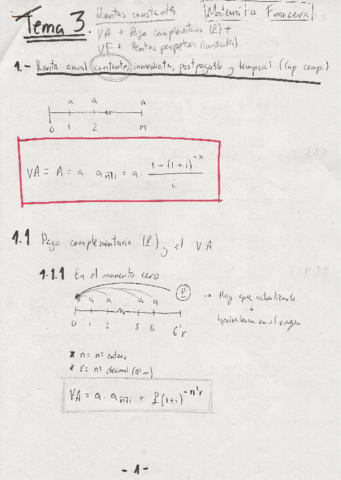 Tema 3.
Rentas constantes
Matemática Financiera
VA + Pago complementario (P) +
VF + Rentas perpetuas (constantes)
1.- Renta anual constante, inmediata, pospagable y temporal (Cap. comp.)
a a a
0 1 2 n
VA = A = a · a n¬i = a · 1-(1+i)^-n / i
1.1 Pago complementario (P) y el VA
1.1.1 En el momento cero
P
a a a a
0 1 2 5 6 6'r
→ Hay que calcularle
equivalencia en el origen
* n = nº entero
* r = nº decimal (0'...)
VA = a · a n¬i + P(1+i)^-n'r
- 1 -